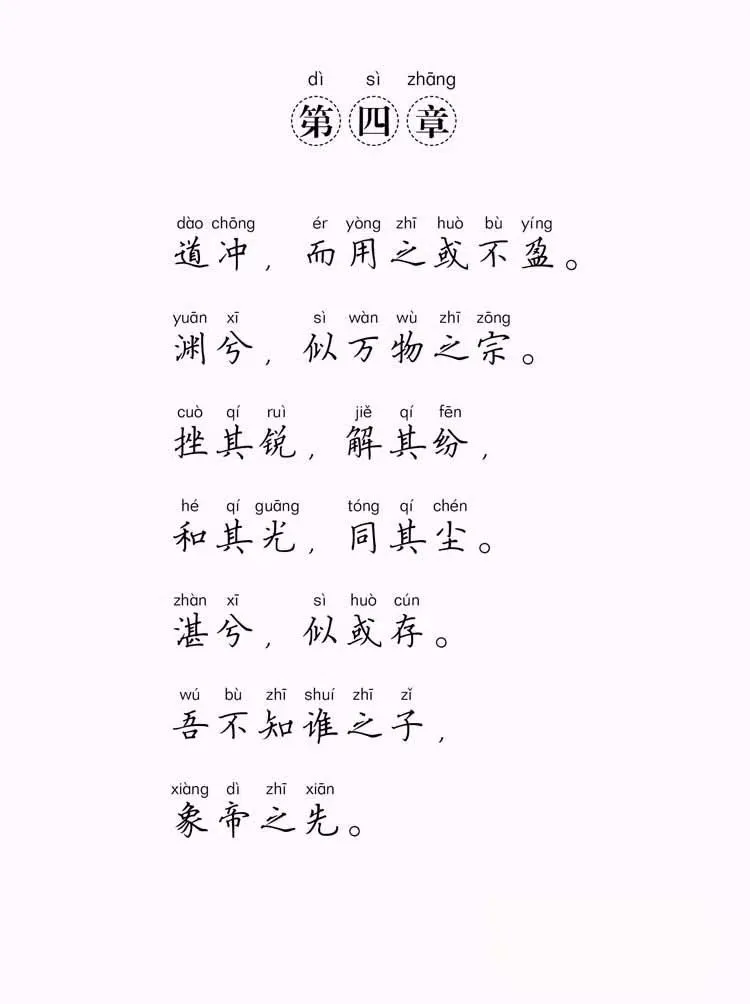 dì sì zhāng
第四章
dào chōng ér yòng zhī huò bù yíng
道冲，而用之或不盈。
yuān xī sì wàn wù zhī zōng
渊兮，似万物之宗。
cuò qí ruì jiě qí fēn
挫其锐，解其纷，
hé qí guāng tóng qí chén
和其光，同其尘。
zhàn xī sì huò cún
湛兮，似或存。
wú bù zhī shuí zhī zǐ
吾不知谁之子，
xiàng dì zhī xiān
象帝之先。